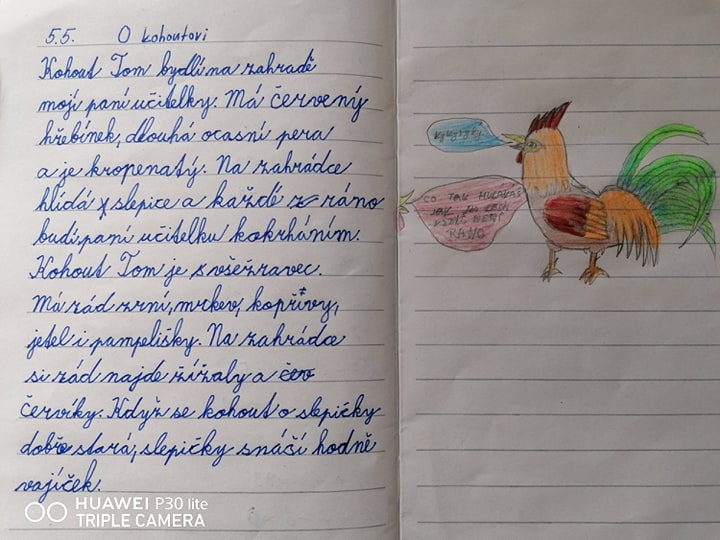 5.5. O kohoutovi
Kohout Tom bydlí na zahradě
mojí paní učitelky. Má červený
hřebínek, dlouhá ocasní pera
a je kropenatý. Na zahrádce
hlídá slepice a každé ráno
budí paní učitelku kokrháním.
Kohout Tom je všežravec.
Má rád zrní, mrkev, kopřivy,
jetel i pampelišky. Na zahrádce
si rád najde žížaly a
červíky. Když se kohout o slepičky
dobře stará, slepičky snáší hodně
vajíček.
kykyryký
CO TAK HULÁKÁŠ
RÁNO
HUAWEI P30 lite
TRIPLE CAMERA